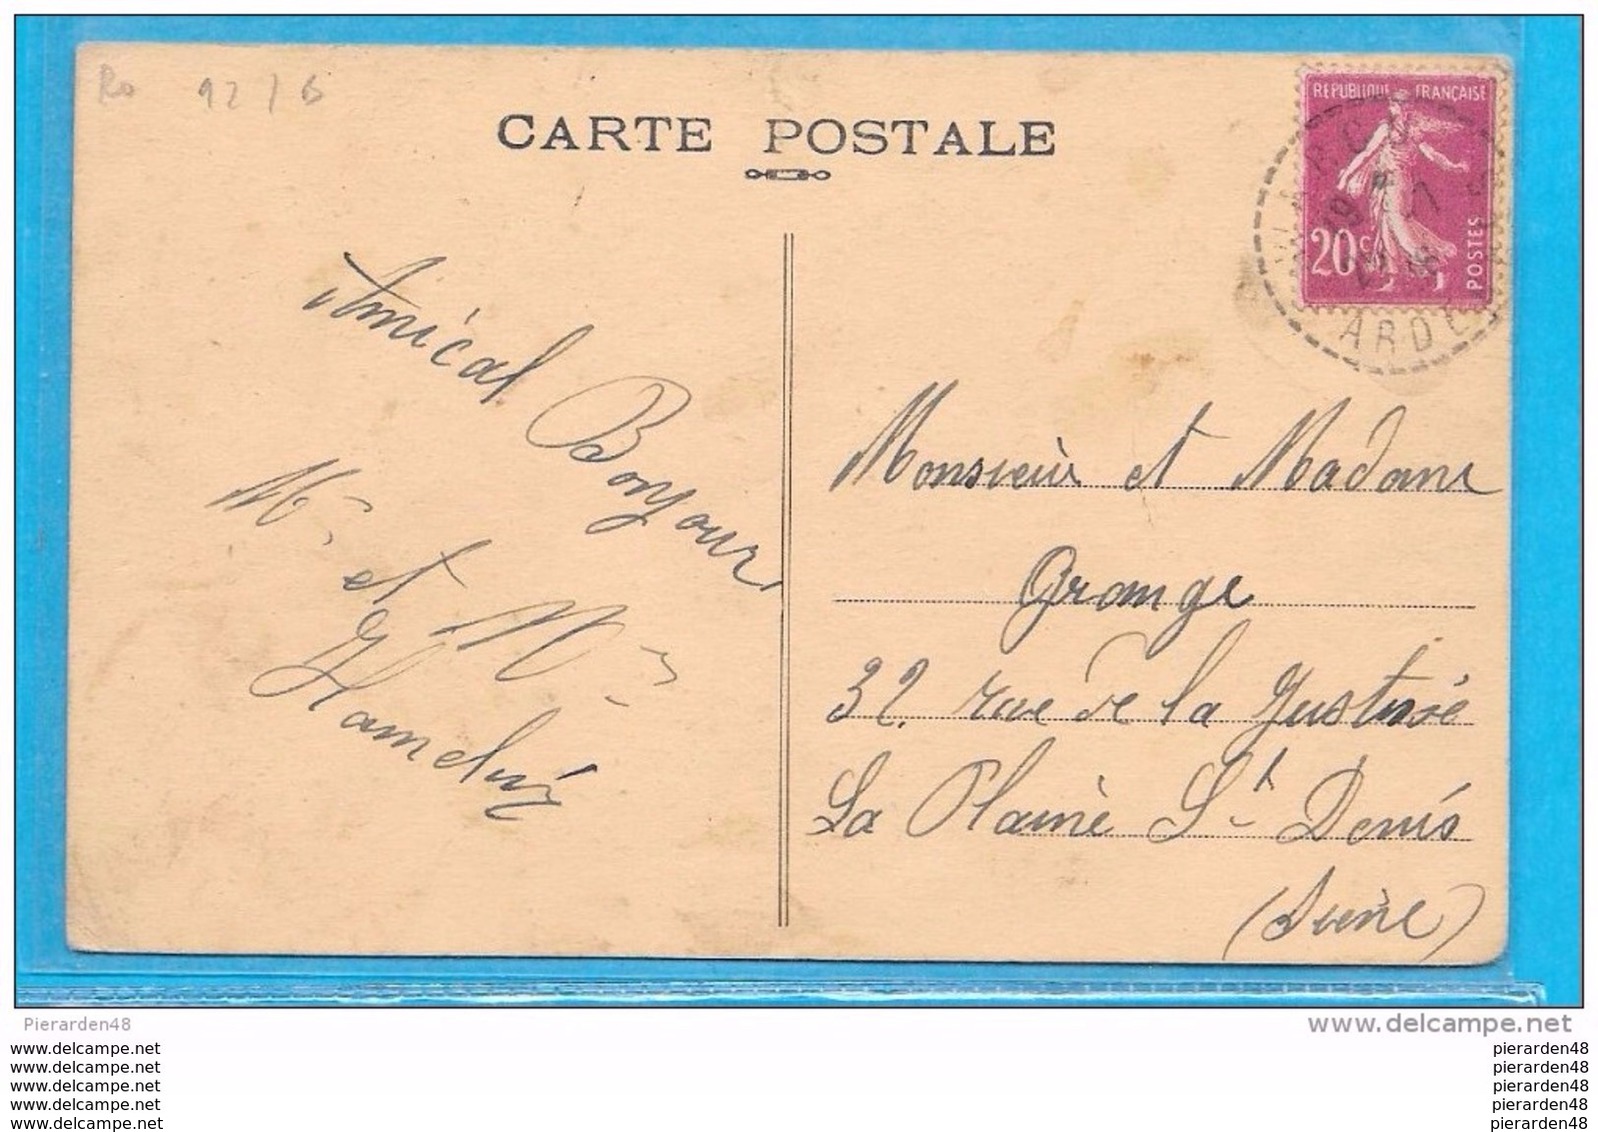 Ro 92/6
CARTE POSTALE
REPUBLIQUE FRANÇAISE
20c
POSTES
ARDE
Amical Bonjour
Mr et Mme
Monsieur et Madame
Grange
32 rue de la Justice
La Plaine St Denis
(Seine)
Pierarden48
www.delcampe.net
www.delcampe.net
www.delcampe.net
www.delcampe.net
www.delcampe.net
www.delcampe.net
pierarden48
pierarden48
pierarden48
pierarden48
pierarden48